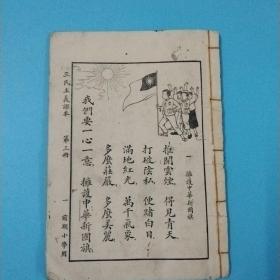 一 擁護中華新國旗
推開雲煙 得見青天
打破陰私 便睹白日
滿地紅光 萬千氣象
多麼莊嚴 多麼美麗
我們要一心一意 擁護中華新國旗
三民主義課本 第二冊
一 前期小學用